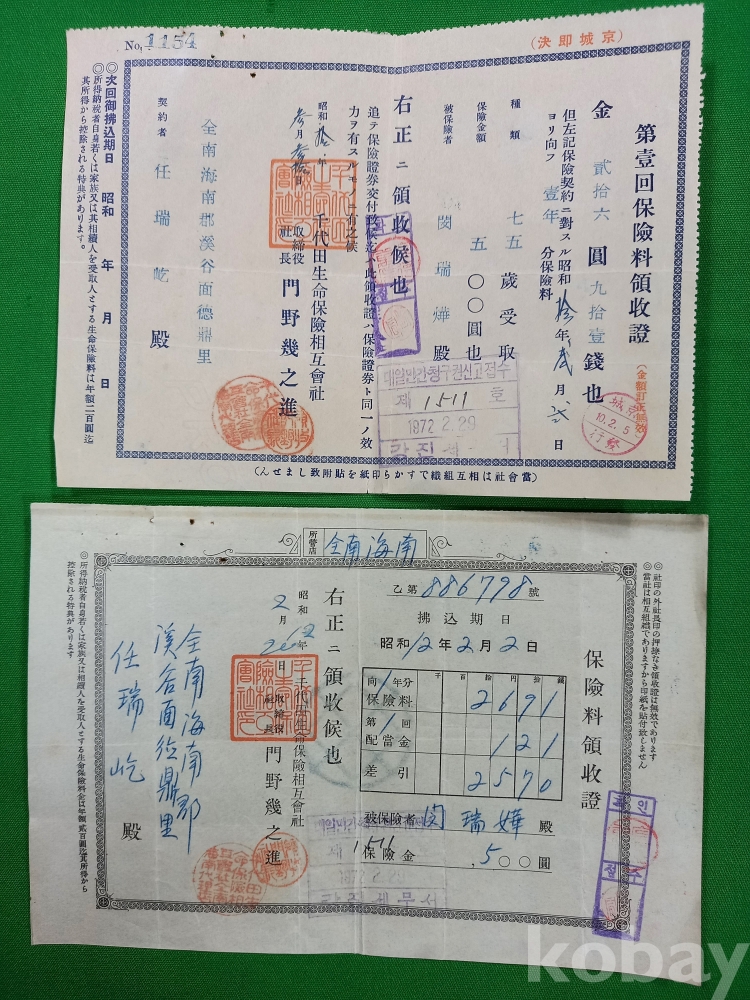 No. 1154
(京城即決)
第壹回保險料領收證
(金額訂正無效)
金貳拾六圓九拾壹錢也
但左記保險契約ニ對スル昭和拾年貳月貳日
ヨリ向フ壹年分保險料
種類 七五歲受取
保險金額 五〇〇圓也
被保險者 閔瑞燁殿
右正ニ領收候也
追テ保險證券交付致候迄ハ此領收證ハ保險證券ト同一ノ效
力ヲ有スルモノニ有之候
昭和拾年
千代田生命保險相互會社
取締役
社長 門野幾之進
全南海南郡溪谷面德鼎里
契約者 任瑞屹殿
◎次回御拂込期日 昭和 年 月 日
◎所得納稅者自身若くは家族又は其相續人を受取人とする生命保險料は年額二百圓迄
其所得から控除される特典があります。
(當會社は相互組織ですから印紙を貼附致しません)
京城
10.2.5
대일민간청구권신고접수
제 1511 호
1972.2.29
강진세무서
所管店 全南海南
◎社印の外社長印の押捺なき領收證は無效であります
◎當社は相互組織でありますから印紙を貼付致しません
保險料領收證
乙第886798號
拂込期日
昭和12年2月2日
千 百 拾 円 拾 錢
向1年分
保險料 2691
第1回
配當金 121
差引 2570
被保險者 閔瑞燁殿
保險金 500圓
右正ニ領收候也
昭和 年2月 日
千代田生命保險相互會社
取締役
社長 門野幾之進
全南海南郡
溪谷面德鼎里
任瑞屹殿
◎所得納稅者自身若くは家族又は其相續人を受取人とする生命保險料金は年額貳百圓迄其所得から
控除される特典があります
확인
절수
제 1511
1972.2.29
강진세무서
kobay